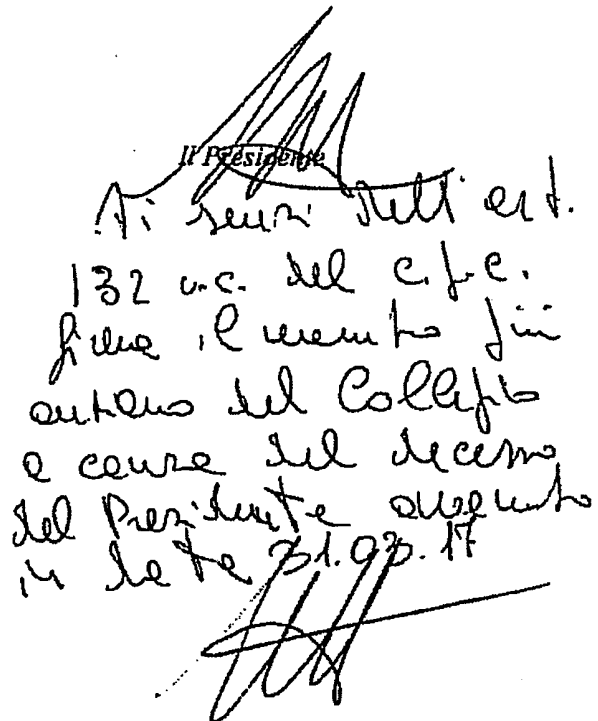 Il Presidente
Ai sensi dell'art.
132 u.c. del c.p.c.
firma il membro più
anziano del Collegio
a causa del decesso
del Presidente avvenuto
in data 31.03.17